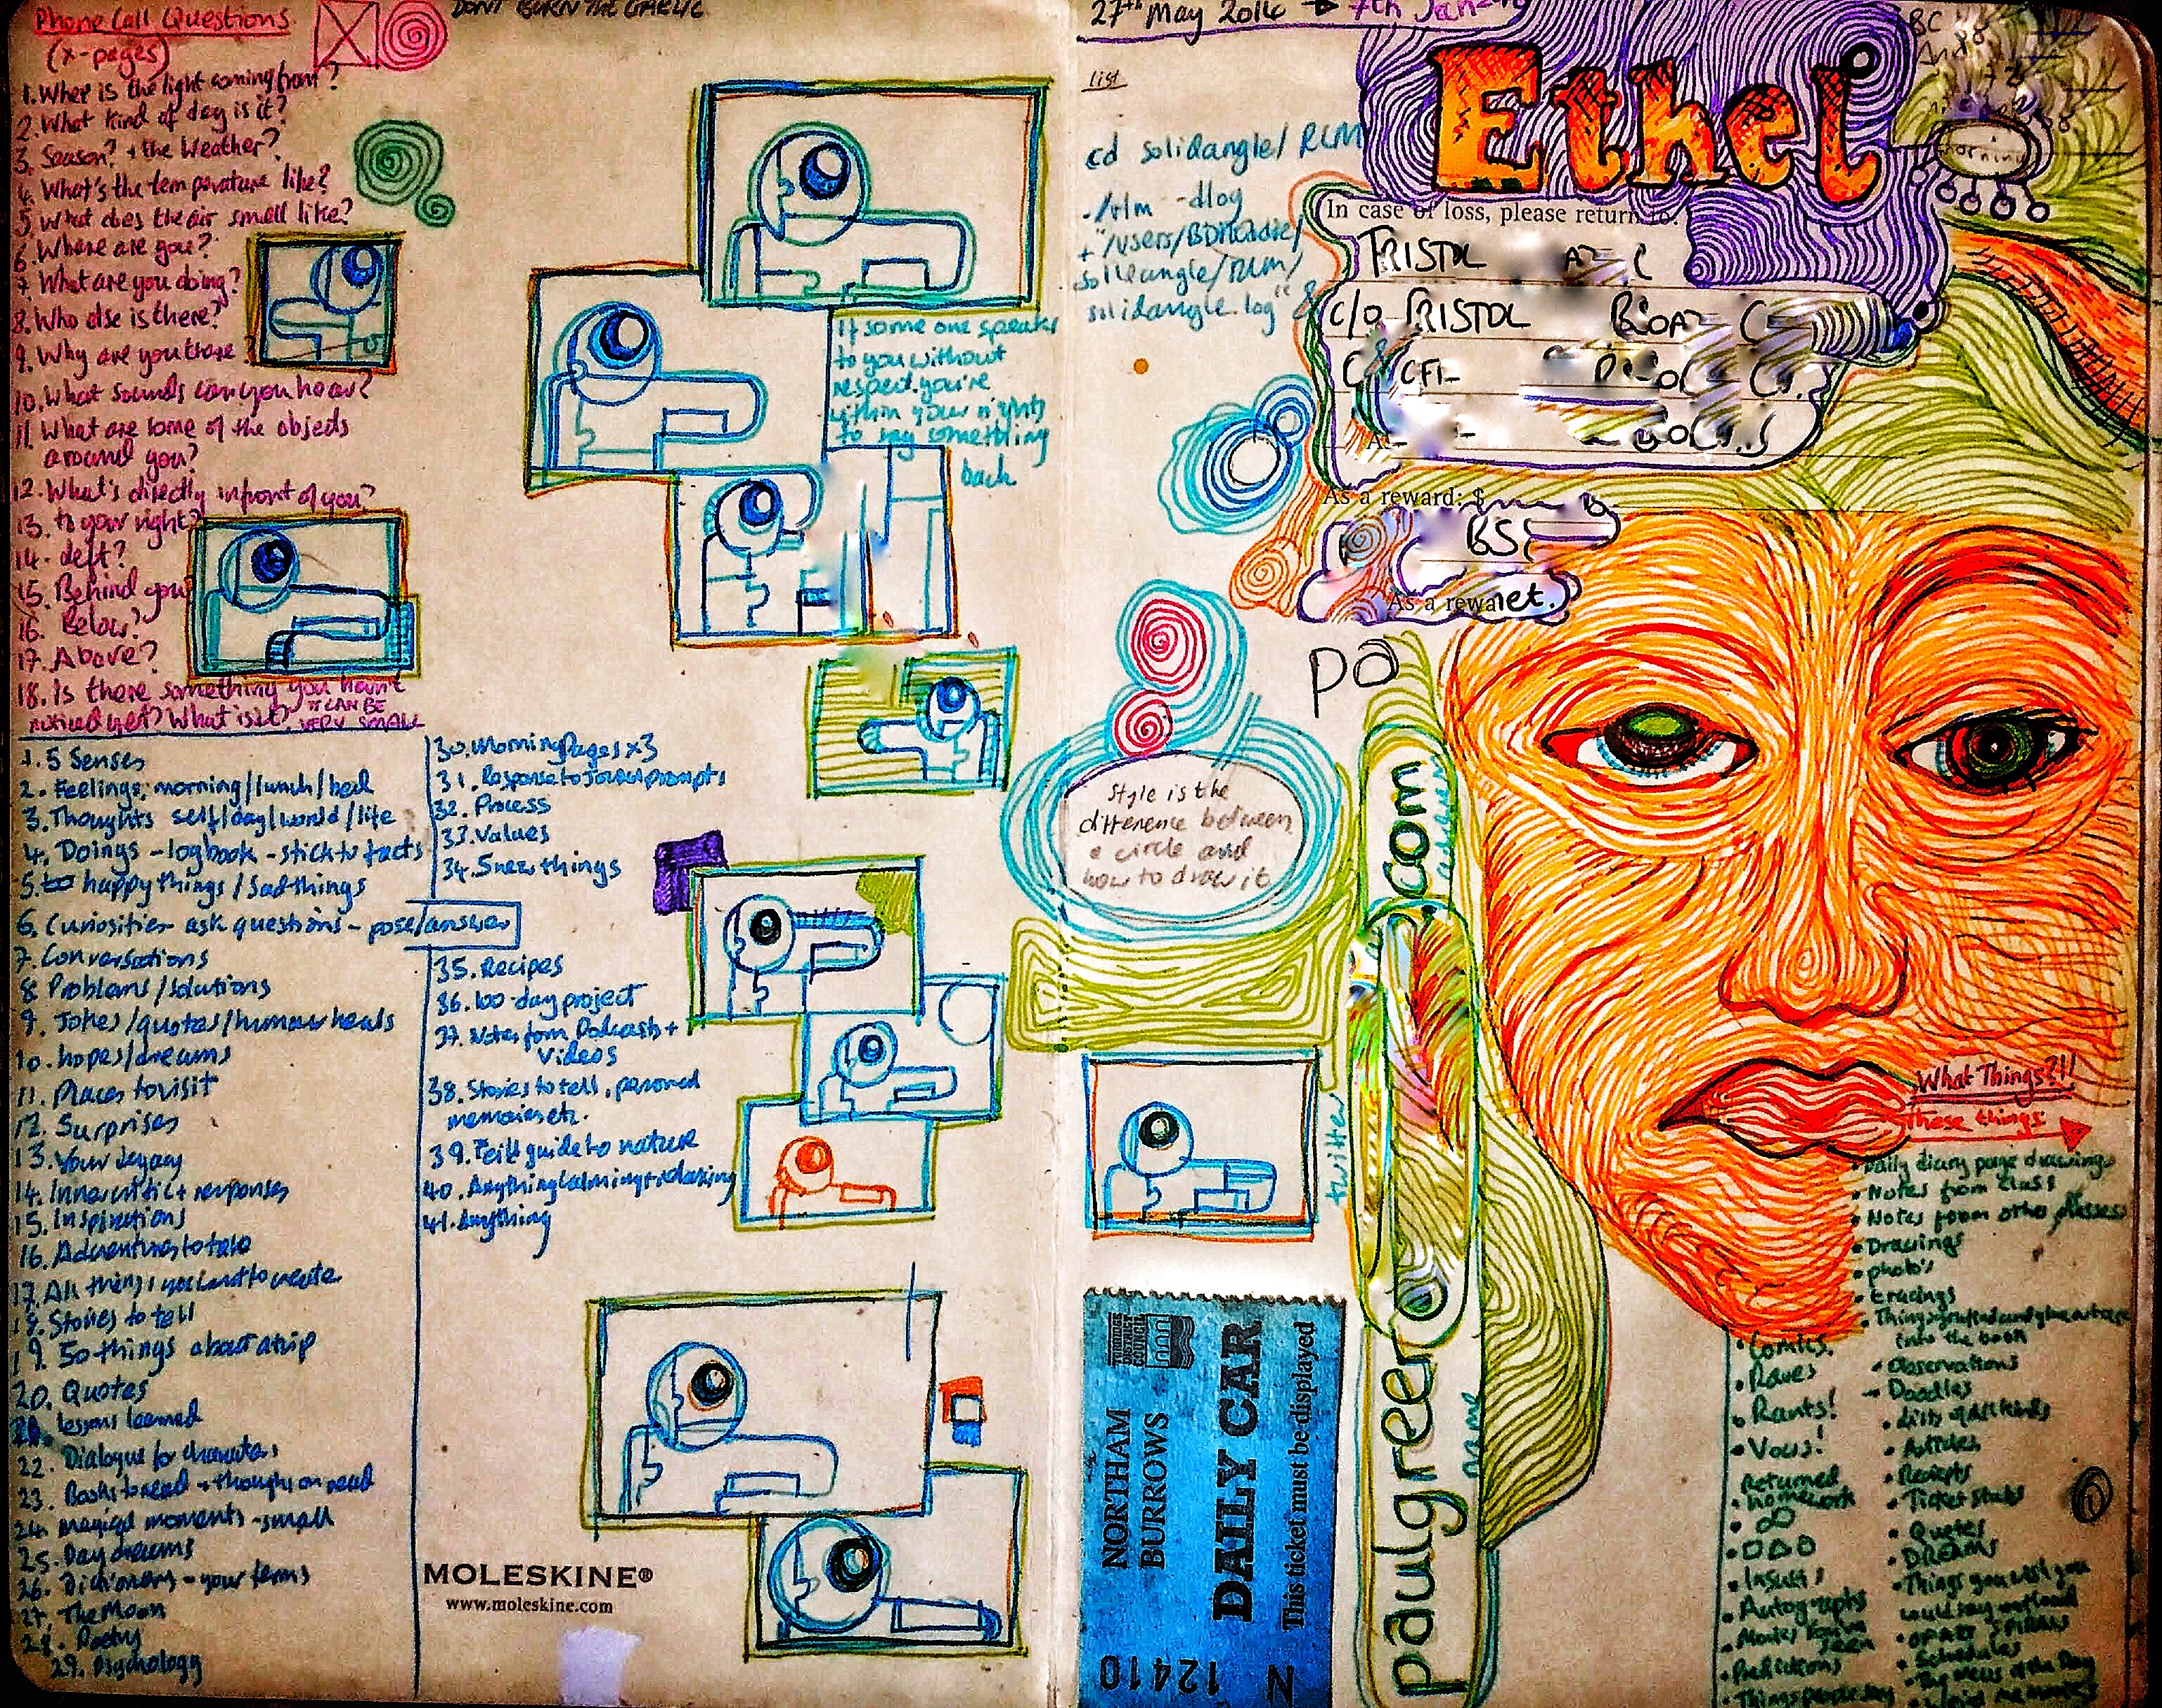 Phone Call Questions
(x-pages)
1. Wher is the light coming from?
2. What kind of day is it?
3. Season? + the Weather?
4. What's the temperature like?
5. What does the air smell like?
6. Where are you?
7. What are you doing?
8. Who else is there?
9. Why are you there?
10. What sounds can you hear?
11. What are some of the objects
around you?
12. What's directly infront of you?
13. to your right?
14. Left?
15. Behind you
16. Below?
17. Above?
18. Is there something you havnt
noticed yet? What is it? IT CAN BE
VERY SMALL
1. 5 Senses
2. Feelings, morning/lunch/bed
3. Thoughts self/day/world/life
4. Doings - logbook - stick to facts
5. happy things / Sad things
6. Curiosities ask questions - pose/answer
7. Conversations
8. Problems/solutions
9. Jokes/quotes/
10. hopes/dreams
11. Places to visit
12. Surprises
13. Your legacy
14. Inner critic + responses
15. Inspirations
16. Adventures to take
17. All things you want to create
18. Stories to tell
19. 50 things about a trip
20. Quotes
lessons learned
22. Dialogue for characters
23. Books to read + thoughts on read
24. magical moments - small
25. Day dreams
26. Dictionary - your terms
27. The Moon
28. Poetry
29. Psychology
30. Morning Pages x3
31. Response to Journal prompts
32. Process
33. Values
34. 5 new things
35. Recipes
36. 100-day project
37. Notes from Podcasts +
videos
38. Stories to tell, personal
memories etc.
39. Feild guide to nature
40. Anything calming + relaxing
41. Anything
MOLESKINE®
www.moleskine.com
DONT BURN THE GAELIC
If some one speaks
to you without
respect, you're
within your rights
to say something
back
27th May 2016
list
cd solidangle/ RLM
./rlm -dlog
solidangle.log" &
Ethel
In case of loss, please return to:
As a reward: $
As a rewa
net.
pa
.com
paulgreer
twitter
name
Style is the
difference between
a circle and
how to draw it
morning
TORRIDGE
DISTRICT
COUNCIL
NORTHAM
BURROWS
DAILY CAR
This ticket must be displayed
N 12410
What Things?!!
These things
• Daily diary page drawings
• Notes from Class
• Notes from other classes
• Drawings
• photo's
• tracings
into the book
• Observations
• Doodles
• Lists of all kinds
• Articles
• Reciepts
• Ticket stubs
• Quotes
• DREAMS
• Things you wish you
could say out loud
• Schedules
• Comics
• Raves
• Rants!
• Vows!
• Returned
homework
• Insults
• Autographs
• Movies You've
Seen
• Predictions